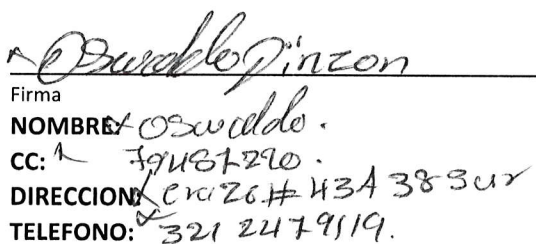 Oswaldo Pinzon
Firma
NOMBRE: Oswaldo.
CC: 79487290.
DIRECCION: Cra 26 # 43A 38 Sur
TELEFONO: 321 2479119.